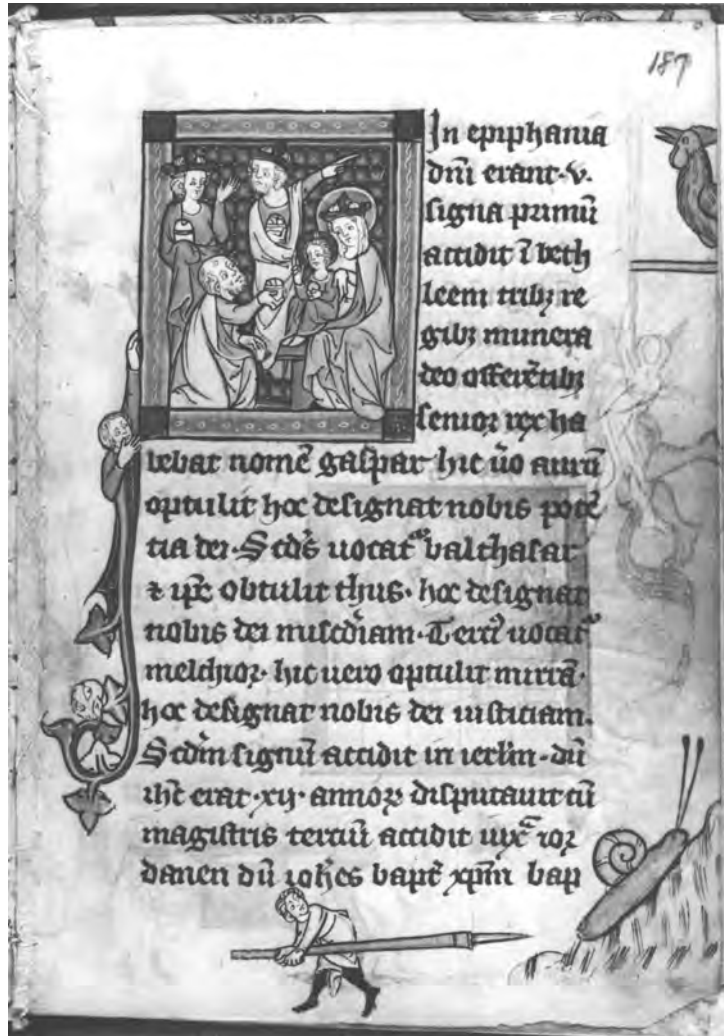 187
In epiphania
dn̄i erant·v·
signa primū
accidit ī beth
leem tribꝫ re
gibꝫ munera
deo offerētibꝫ
senior rex ha
bebat nomē gaspar hic ūo aurū
optulit hoc designat nobis potē
tia dei·Scd̄s uocatᷣ balthasar
⁊ ip̄e obtulit thus· hoc designat
nobis dei mis̄cdiam·Terciꝰ uocatᷣ
melchior· hic uero optulit mirrā·
hoc designat nobis dei iusticiam·
Scd̄m signū accidit in ierl̄m·dū
ih̄c erat·xij·annoꝝ disputauit cū
magistris terciū accidit iuxᷓ ior
danen dū ioh̄es bapt̄ xp̄m bap